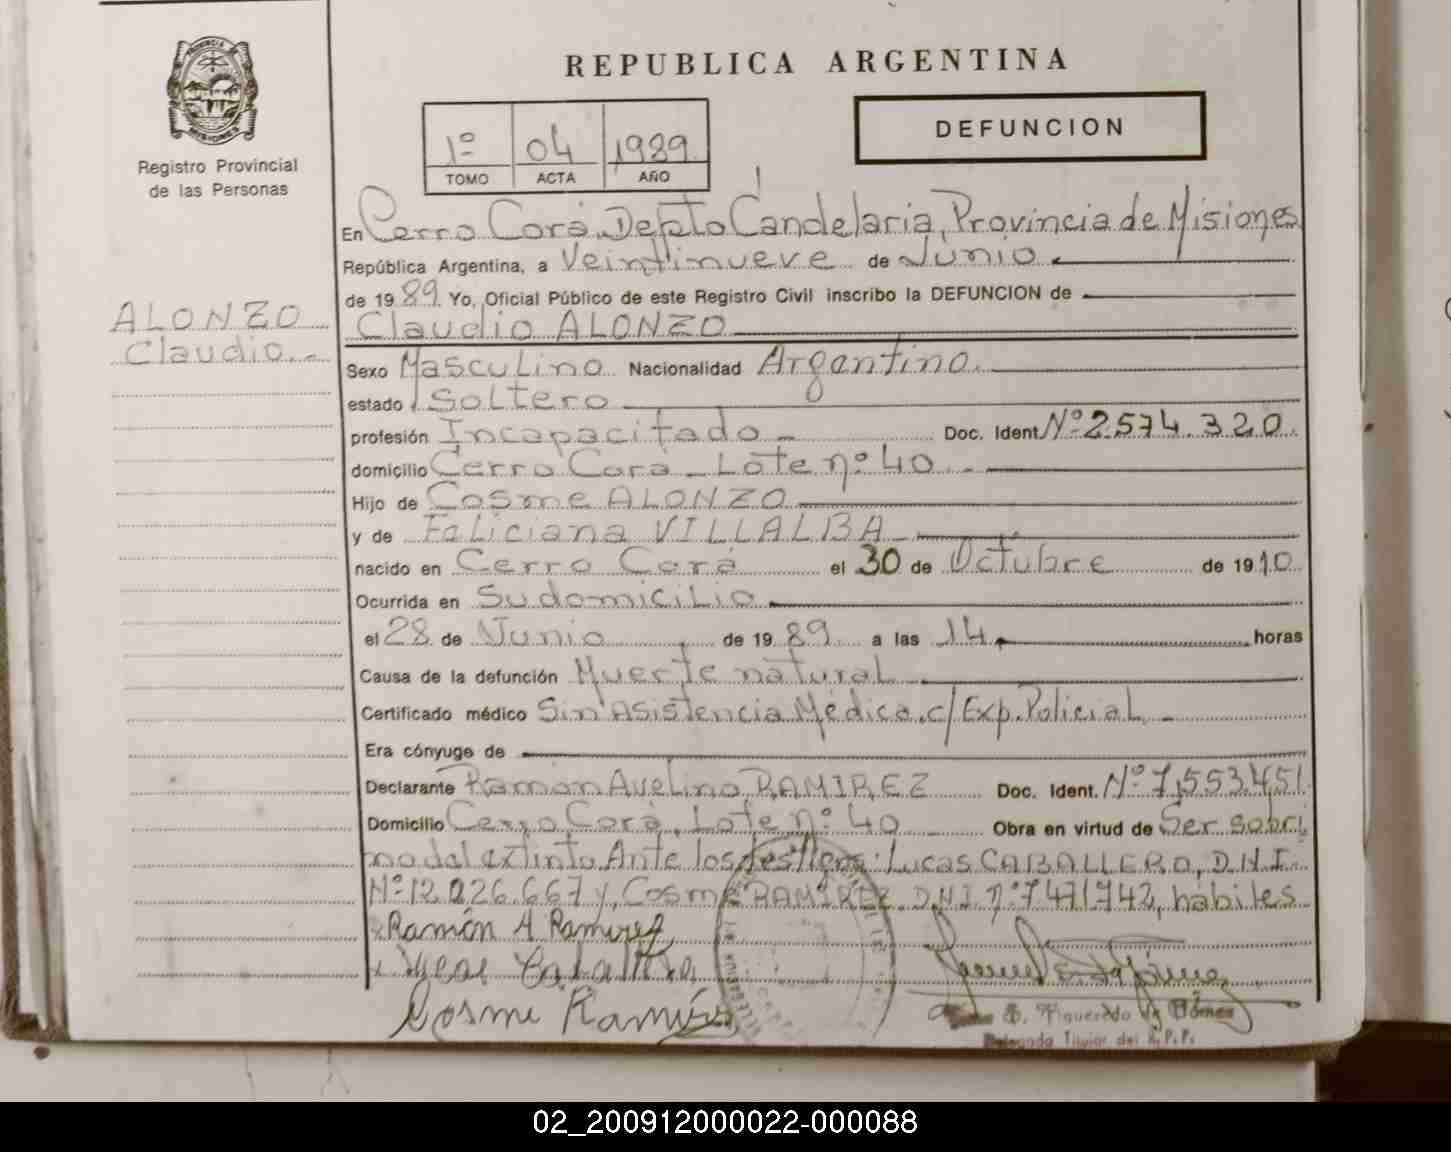 REPUBLICA ARGENTINA
DEFUNCION
PROVINCIA DE MISIONES
Registro Provincial
de las Personas
1º 04 1989
TOMO ACTA AÑO
ALONZO
Claudio.-
En Cerro Corá, Depto Candelaria, Provincia de Misiones
República Argentina, a Veintinueve de Junio
de 1989. Yo, Oficial Público de este Registro Civil inscribo la DEFUNCION de
Claudio ALONZO
Sexo Masculino Nacionalidad Argentino.
estado Soltero
profesión Incapacitado - Doc. Ident. Nº 2.574.320.
domicilio Cerro Corá - Lote nº 40.-
Hijo de Cosme ALONZO
y de Feliciana VILLALBA
nacido en Cerro Corá el 30 de Octubre de 1910
Ocurrida en Su domicilio
el 28 de Junio de 1989 a las 14 horas
Causa de la defunción Muerte natural
Certificado médico Sin Asistencia Médica. c/Exp. Policial -
Era cónyuge de
Declarante Ramón Avelino RAMIREZ Doc. Ident. Nº 7.553.451
Domicilio Cerro Corá, Lote nº 40 Obra en virtud de Ser sobri
no del extinto. Ante los testigos: Lucas CABALLERO, D.N.I.
Nº 12.026.667 y, Cosme RAMIREZ, D.N.I. nº 7.471.742, hábiles
x Ramón A Ramirez
Cosme Ramírez
E. Figueredo de Gómez
Delegada Titular del R.P.P.
02_200912000022-000088